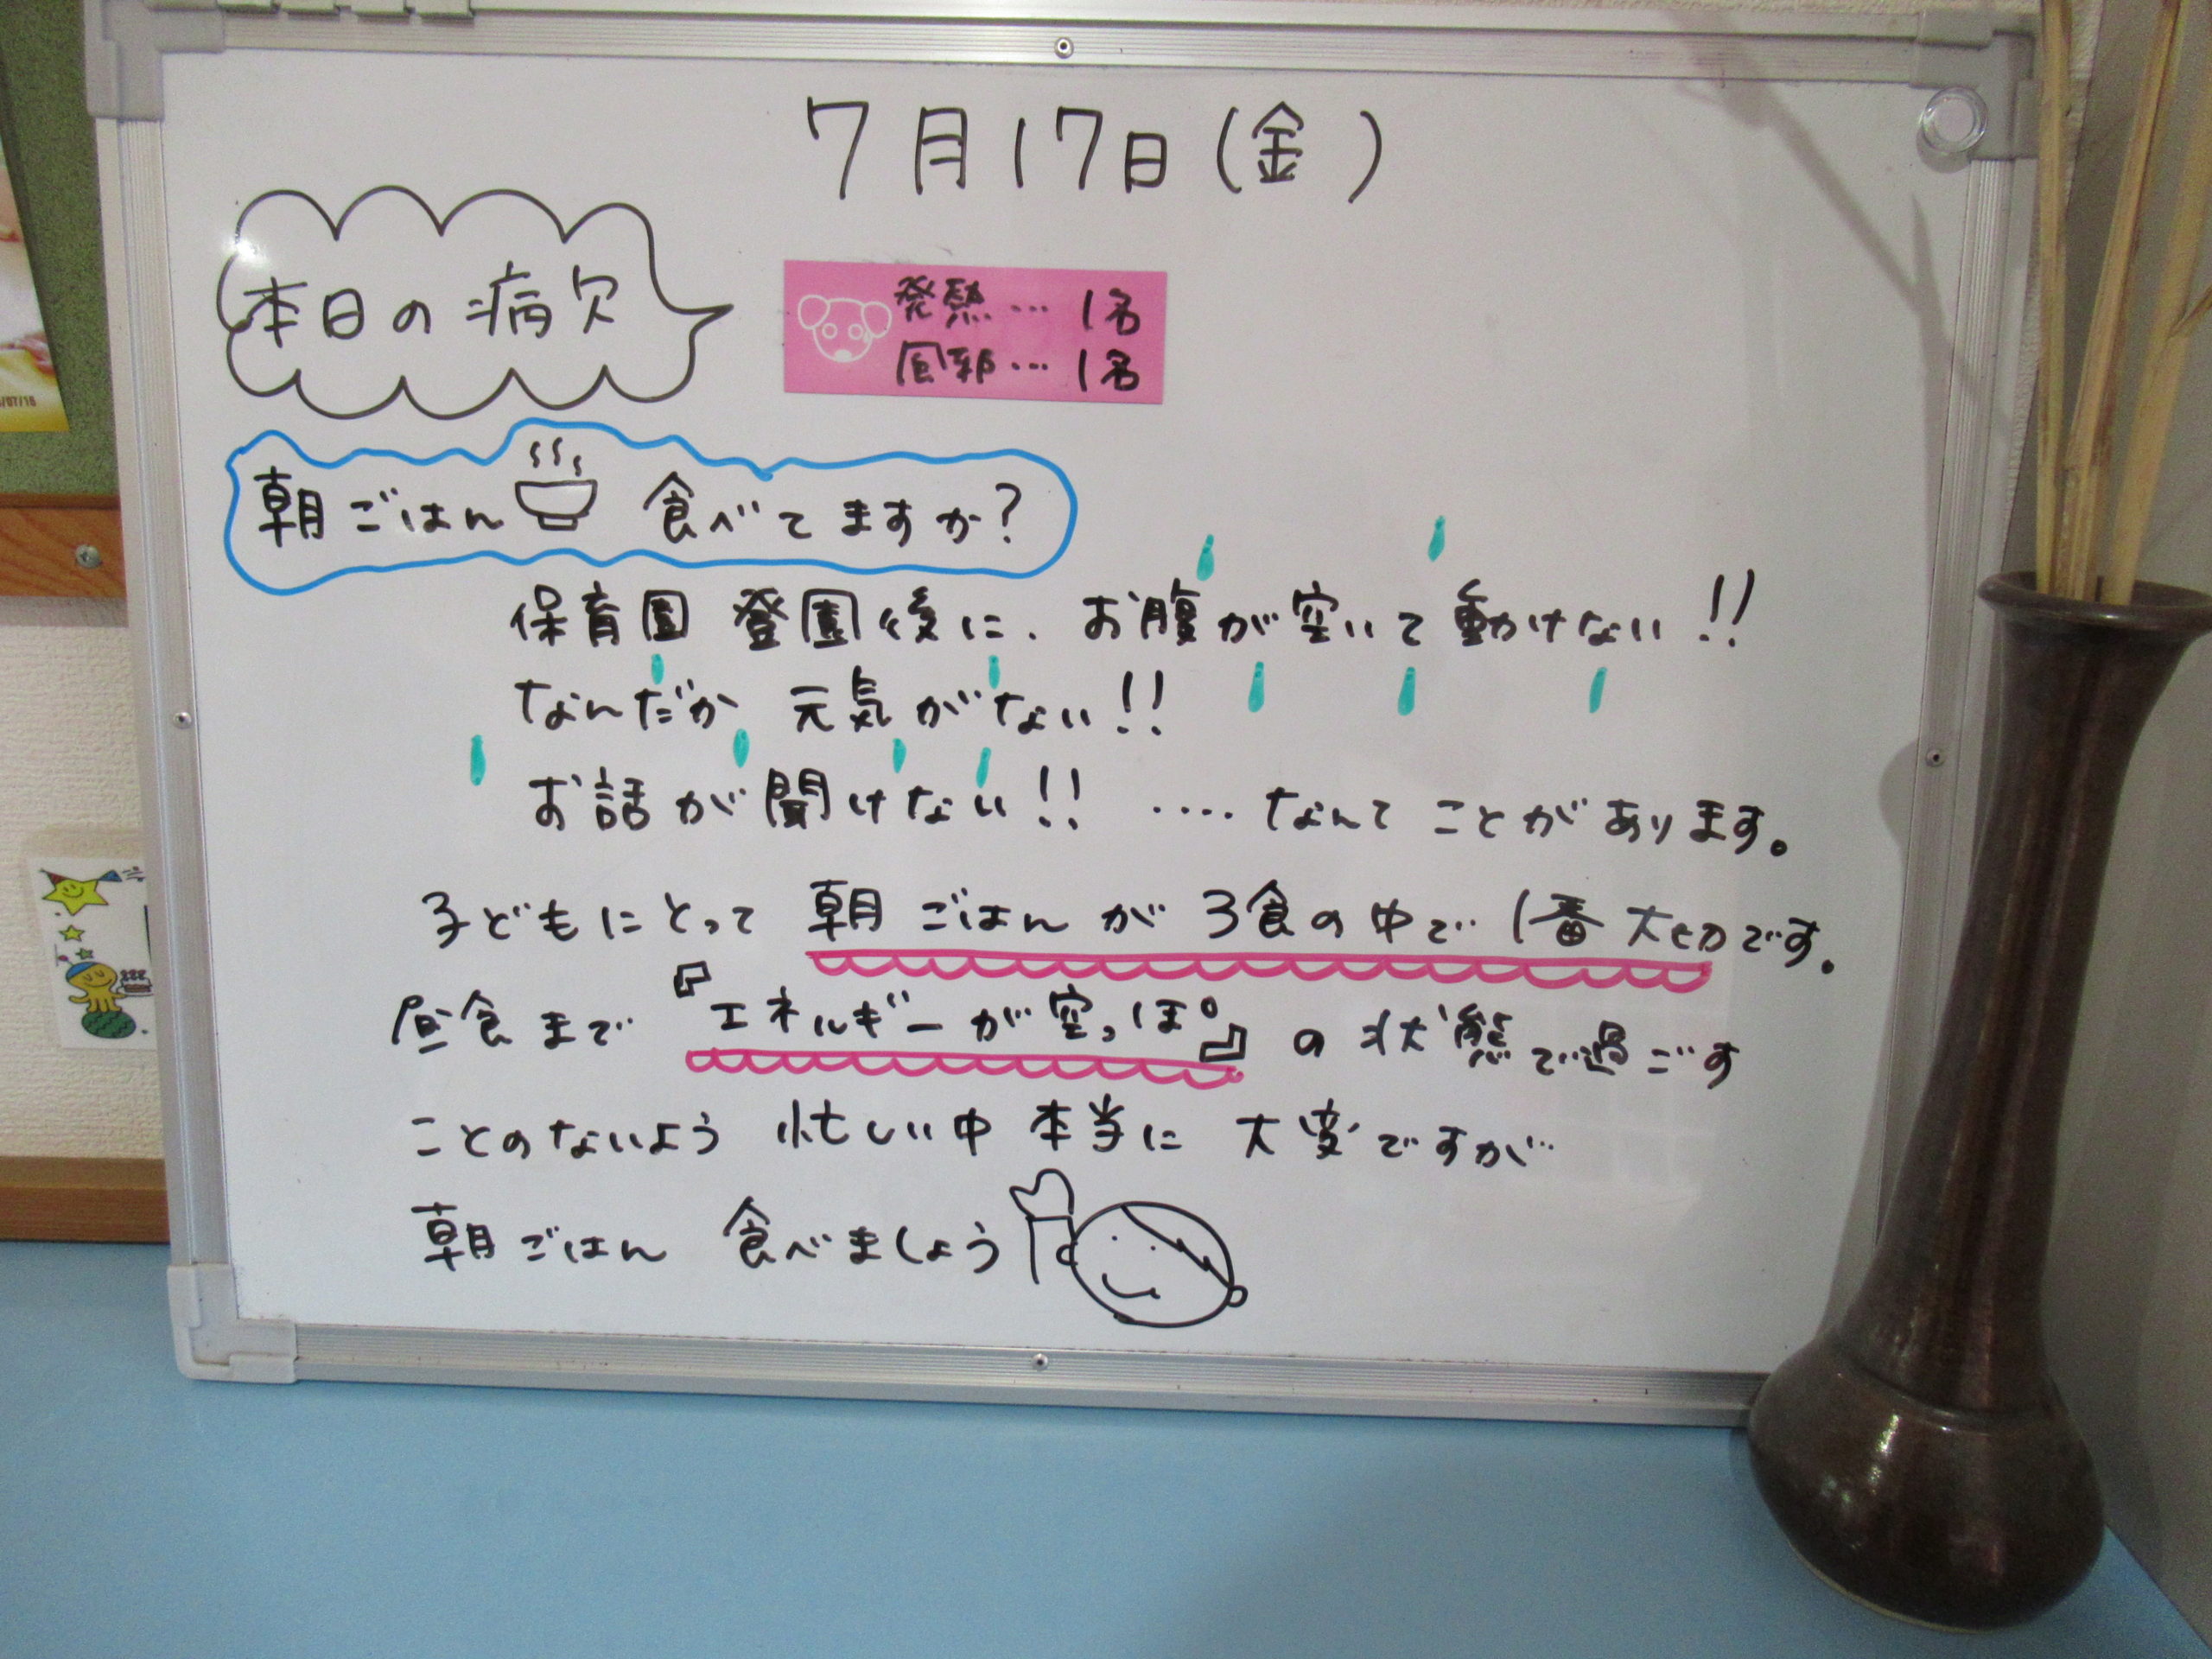 7月17日(金)
本日の病欠
発熱… 1名
風邪… 1名
朝ごはん 食べてますか?
保育園 登園後に、お腹が空いて動けない!!
なんだか 元気がない!!
お話が聞けない!! ‥‥なんてことがあります。
子どもにとって 朝ごはんが 3食の中で 1番大切です。
昼食まで『エネルギーが空っぽ』の状態で過ごす
ことのないよう 忙しい中 本当に 大変ですが…
朝ごはん 食べましょう
/07/15